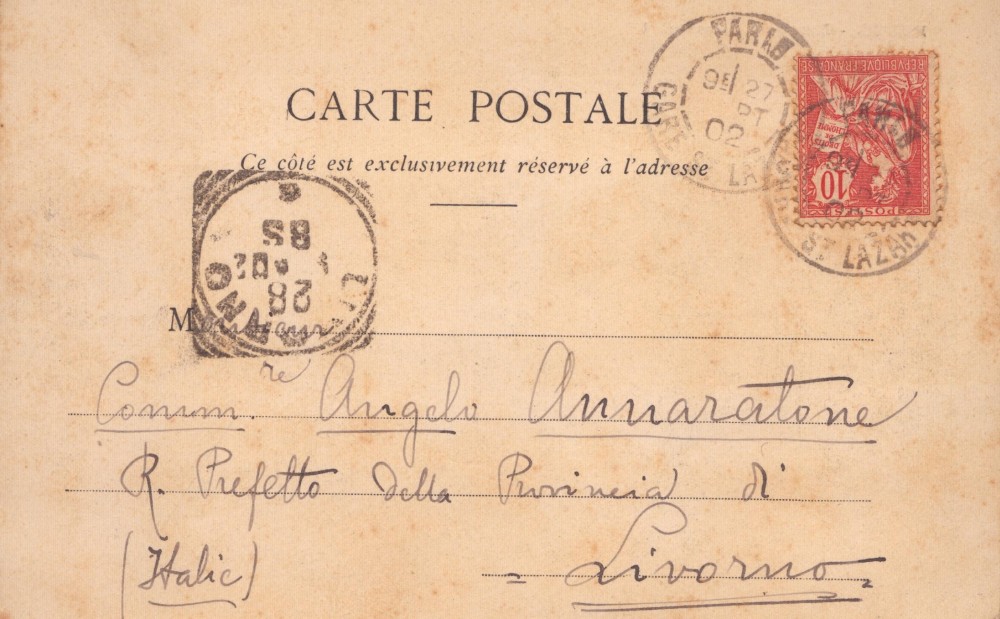 CARTE POSTALE
Ce côté est exclusivement réservé à l'adresse
PARIS
GARE
9E 27
02
REPUBLIQUE FRANCAISE
10
POSTES
ST LAZAR
LIVORNO
28
02
8S
Monsieur
Comm.re Angelo Annaratone
R. Prefetto della Provincia di
(Italie) = Livorno =